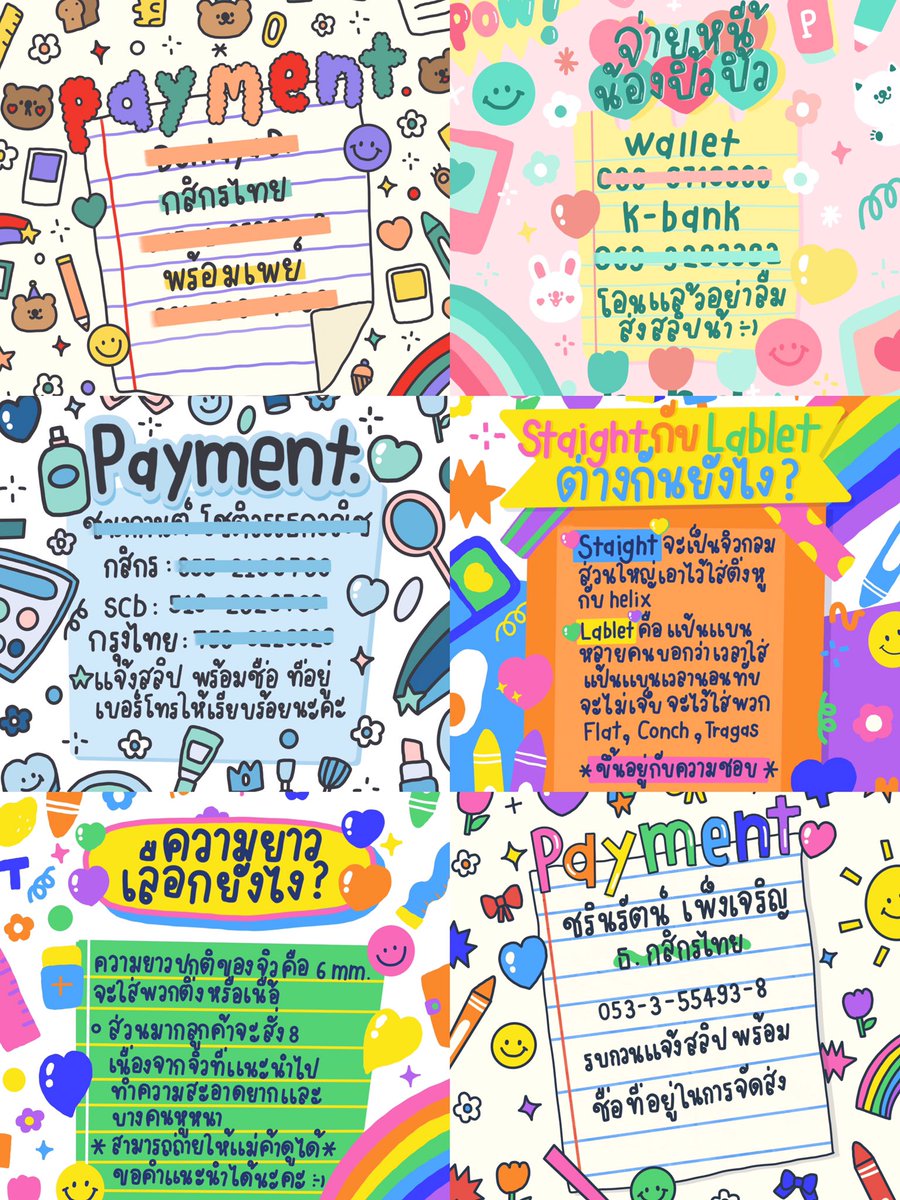 payment.
กสิกรไทย
พร้อมเพย์
POW!
P
จ่ายหนี้
น้องปิ๋วปิ๋ว
wallet
k-bank
โอนแล้วอย่าลืม
ส่งสลิปน้า :-)
Payment.
กสิกร :
scb :
กรุงไทย :
แจ้งสลิป พร้อมชื่อ ที่อยู่
เบอร์โทรให้เรียบร้อยนะคะ
Staight กับ Lablet
ต่างกันยังไง?
Staight จะเป็นจิวกลม
ส่วนใหญ่เอาไว้ใส่ติ่งหู
กับ helix
Lablet คือ แป้นแบน
หลายคนบอกว่าเวลาใส่
แป้นแบนเวลานอนทับ
จะไม่เจ็บ จะไว้ใส่พวก
Flat, Conch, Tragas
*ขึ้นอยู่กับความชอบ*
ความยาว
เลือกยังไง?
ความยาวปกติของจิวคือ 6 mm.
จะใส่พวกติ่งหรือเนื้อ
ส่วนมากลูกค้าจะสั่ง 8
เนื่องจากจิวที่แนะนำไป
ทำความสะอาดยากและ
บางคนหูหนา
*สามารถถ่ายให้แม่ค้าดูได้*
ขอคำแนะนำได้นะคะ :-)
Payment.
ชรินรัตน์ เพ็งเจริญ
ธ. กสิกรไทย
053-3-55493-8
รบกวนแจ้งสลิปพร้อม
ชื่อที่อยู่ในการจัดส่ง